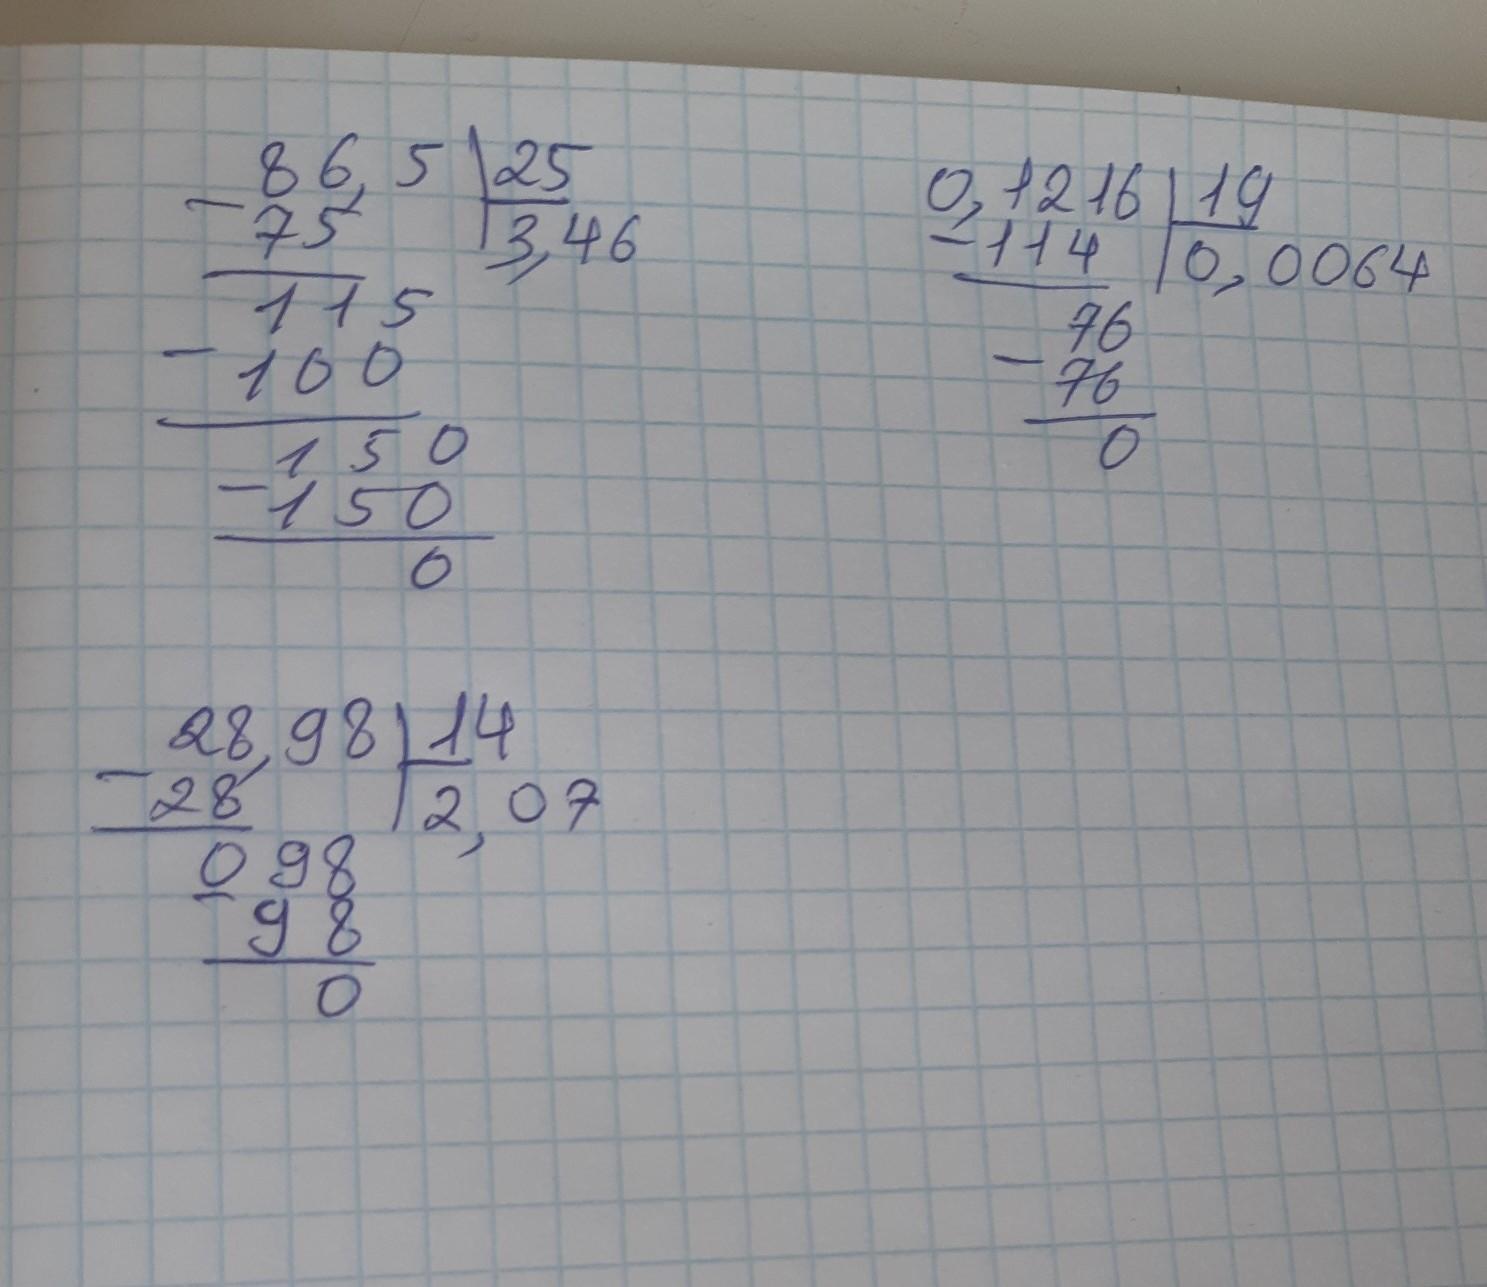 86,5 25
- 75 3,46
115
- 100
150
- 150
0
0,1216 19
- 114 0,0064
76
- 76
0
28,98 14
- 28 2,07
098
- 98
0